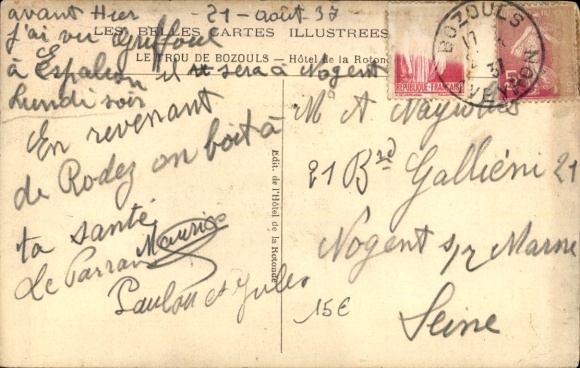 avant Hier 21-août-37
LES BELLES CARTES ILLUSTRÉES
j'ai vu Griffoul
LE TROU DE BOZOULS — Hôtel de la Rotonde
à Espalion il sera à Nogent
Lundi soir
En revenant
de Rodez on boit à
ta santé
Maurice
Paulou et Jules
Edit. de l'Hôtel de la Rotonde
REPUBLIQUE FRANÇAISE
BOZOULS
17
37
AVEYRON
Mr A
21 Bd Galliéni 21
Nogent s/ Marne
Seine
15€